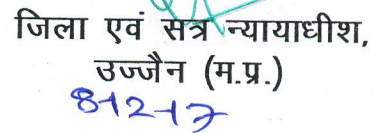 जिला एवं सत्र न्यायाधीश,
उज्जैन (म.प्र.)
8-12-17